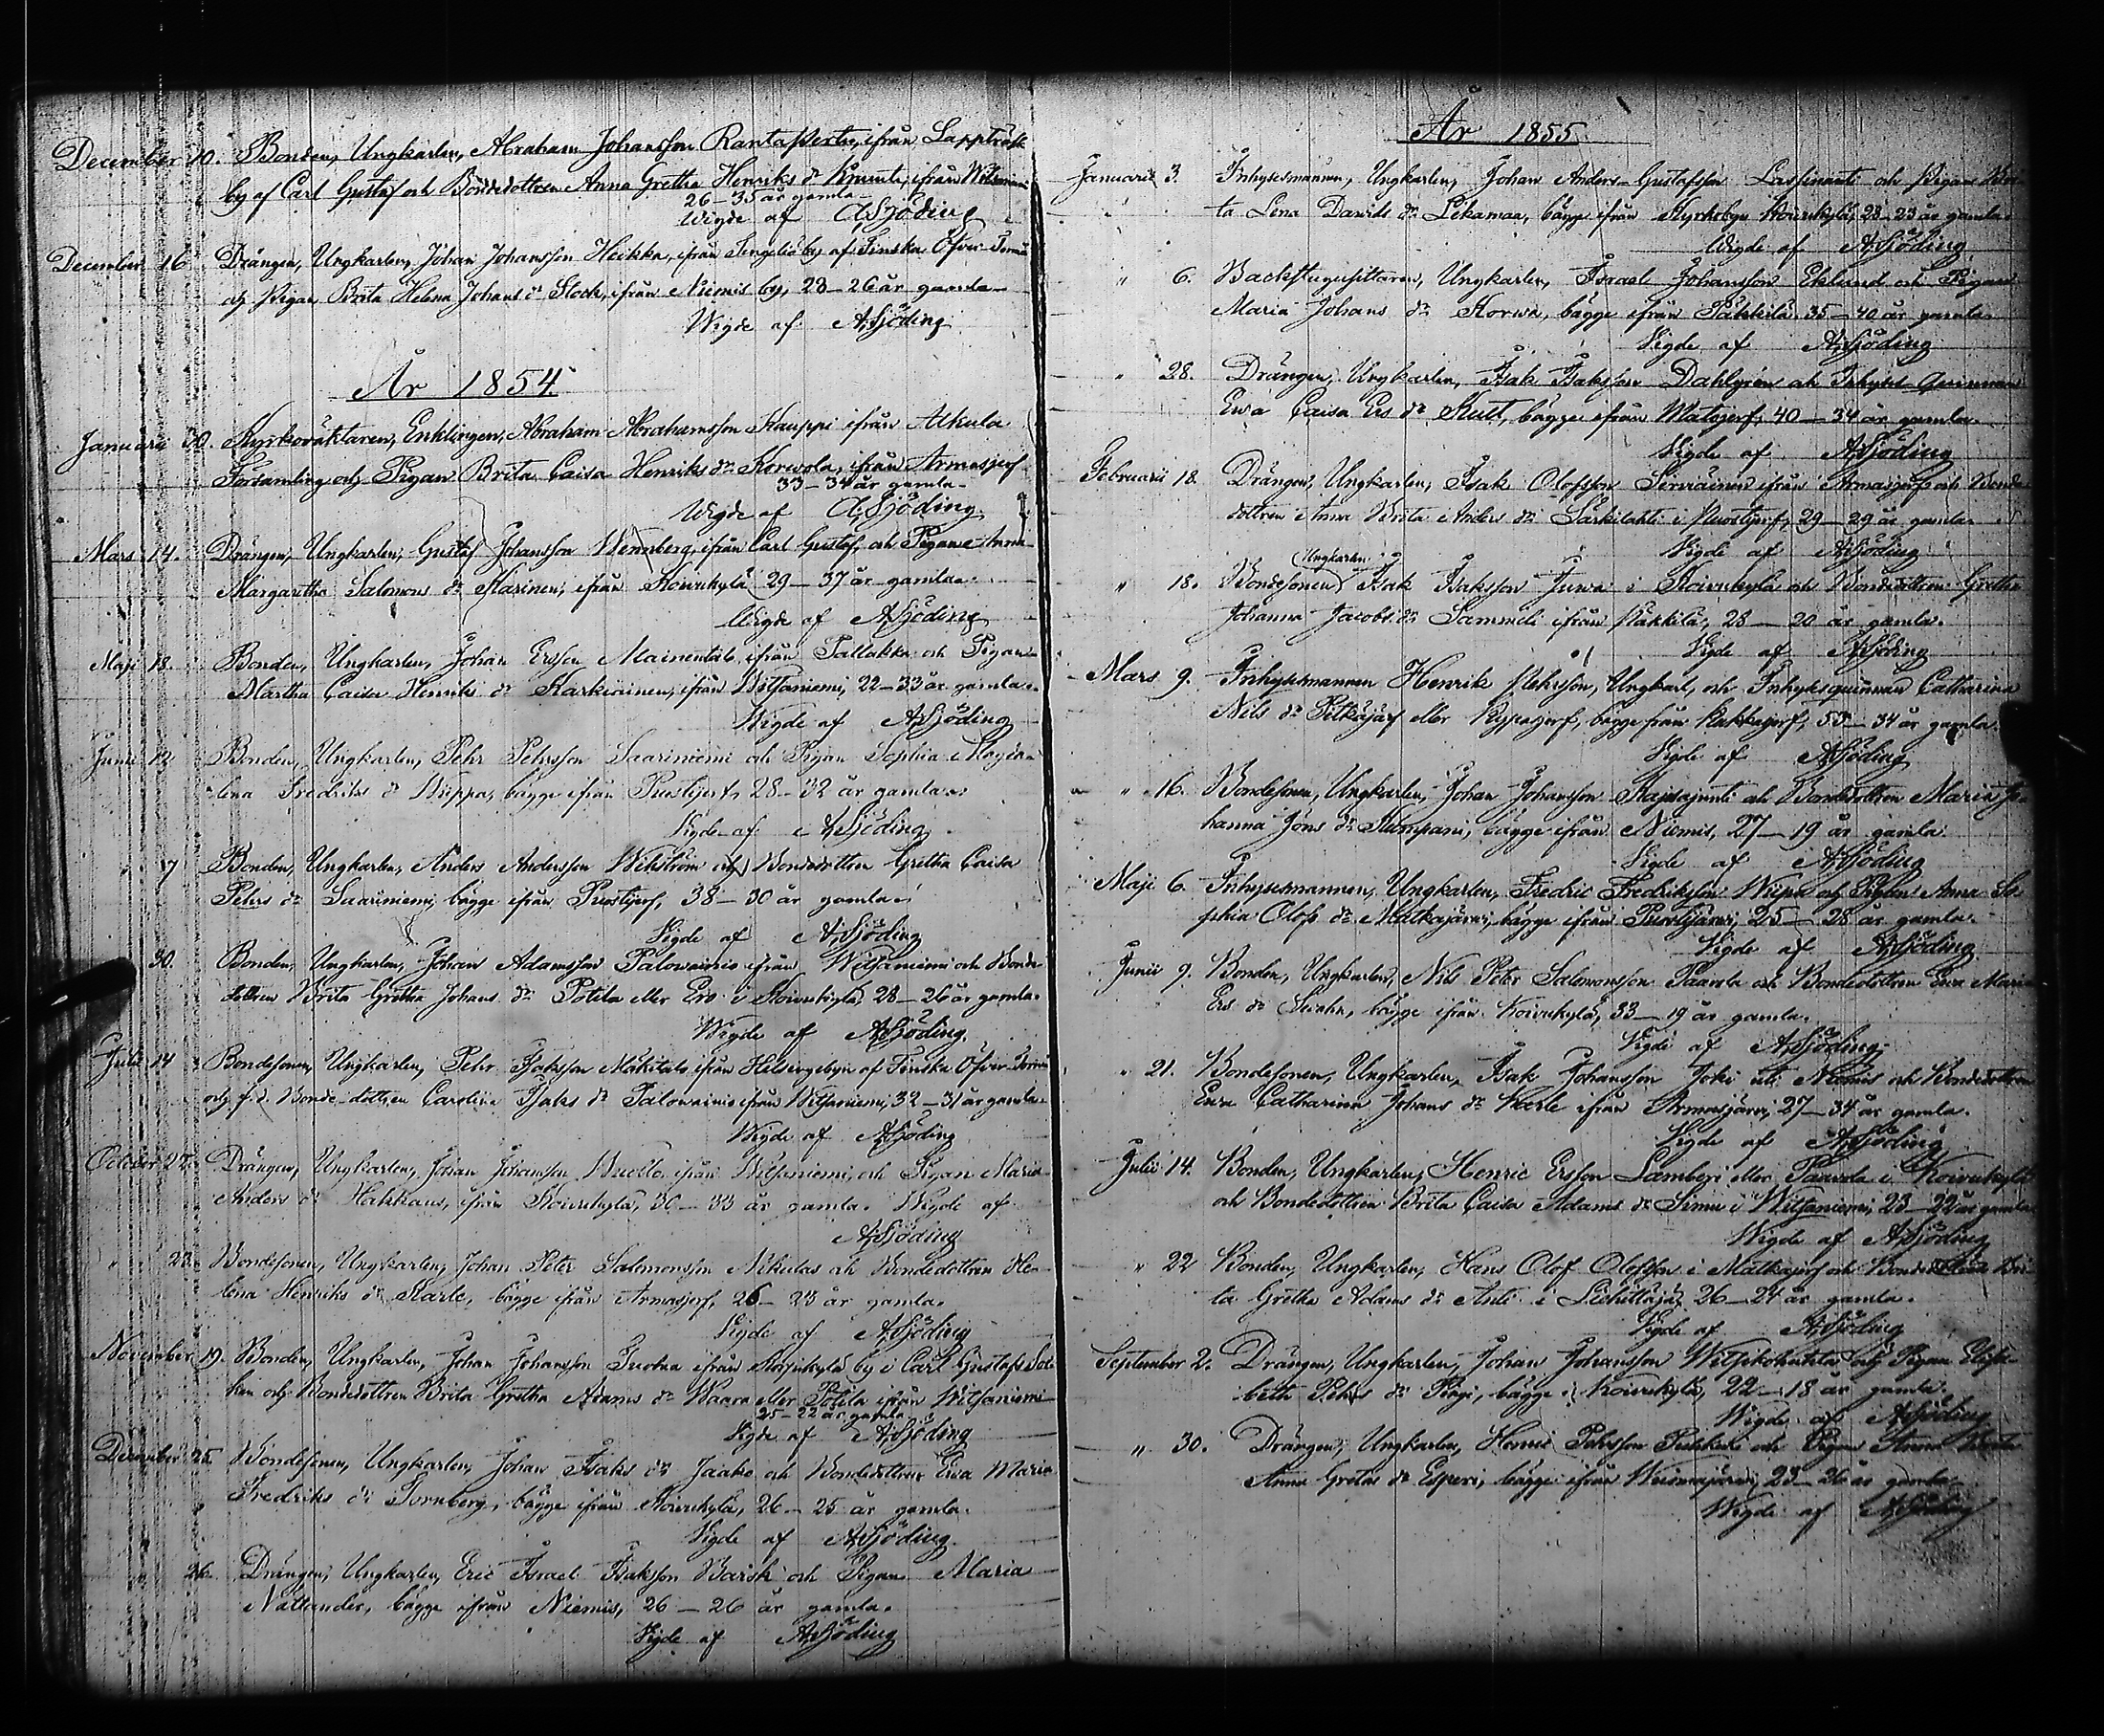 December 10. Bonden, Ungkarlen, Abraham Johansson Rantapertu, ifrån Lappträsk
by af Carl Gustaf och Bondedottren Anna Gretha Henriks dr ifrån Witsaniemi
26-35 år gamla
Wigde af A.Sjöding
December 16 Drängen, Ungkarlen, Johan Johansson Heikka, ifrån Tengeliö by af Finska Öfver Torneå
och Pigan Brita Helena Johans dr Stock, ifrån Niemis by, 28-26 år gamla
Wigde af A.Sjöding
År 1854.
Januarii 30. Kyrkoväktaren, Enklingen, Abraham Abrahamsson Kauppi ifrån Alkula
Församling och Pigan Brita Caisa Henriks dr Korwola, ifrån Armasjerf
33-34 år gamla
Wigde af A.Sjöding
Mars 14. Drängen, Ungkarlen, Gustaf Johansson Wennberg, ifrån Carl Gustaf, och Pigan Anna
Margaretha Salomons dr Karinen, ifrån Koivukylä 29-37 år gamla
Wigde af A.Sjöding
Maji 18. Bonden, Ungkarlen, Johan Ersson ifrån Pallakka och Pigan
Martha Caisa Henriks dr Karkiainen, ifrån Witsaniemi, 22-33 år gamla.
Wigde af A.Sjöding
Junii 12 Bonden, Ungkarlen, Pehr Pehrsson Saariniemi och Pigan Sophia Magda-
lena Fredriks dr Wuppa, bägge ifrån Puostijerf, 28-32 år gamla.
Vigde af A.Sjöding
" 17 Bonden, Ungkarlen, Anders Andersson Wikström och Bondedottren Gretha Caisa
Pehrs dr Saariniemi, bägge ifrån Puostijerf, 38-30 år gamla.
Vigde af A.Sjöding
30. Bonden, Ungkarlen, Johan Adamsson Palowainio ifrån Witsaniemi och Bonde-
dottren Brita Gretha Johans dr Potila eller Ero i Koivukylä, 28-26 år gamla.
Wigde af A.Sjöding.
Julii 14 Bondesonen, Ungkarlen, Pehr Isaksson Mäkitalo ifrån Helsingebyn af Finska Öfver Torneå
och f.d. Bonde-dottren Carolina Isaks dr Palowainio ifrån Witsaniemi, 32-31 år gamla.
Wigde af A.Sjöding
October 22. Drängen, Ungkarlen, Johan Johansson ifrån Witsaniemi, och Pigan Maria
Anders dr Hakkaus, ifrån Koivukylä, 30-33 år gamla. Wigde af
A.Sjöding
" 23. Bondesonen, Ungkarlen, Johan Peter Salomonsson Nikulas och Bondedottren He-
lena Henriks dr Karle, bägge ifrån Armasjerf, 26-23 år gamla.
Vigde af A.Sjöding
November 19. Bonden, Ungkarlen, Johan Johansson ifrån by i Carl Gustafs
och Bondedottren Brita Gretha Adams dr Waara eller Potila ifrån Witsaniemi
25-22 år gamla.
Vigde af A.Sjöding
December 25 Bondesonen, Ungkarlen, Johan Isaks dr Jaako och Bondedottren Ewa Maria
Fredriks dr Tornberg, bägge ifrån Koivukylä, 26-25 år gamla.
Vigde af A.Sjöding.
26. Drängen, Ungkarlen, Eric Israel Isaksson Barsk och Pigan Maria
Nattander, bägge ifrån Niemis, 26-26 år gamla.
Vigde af A.Sjöding
År 1855
Januarii 3. Inhysesmannen, Ungkarlen, Johan Anders Gustafsson Lassinanti och Pigan Bri-
ta Lena Davids dr Lekamaa, bägge ifrån Kyrkobyn Koivukylä, 23-23 år gamla.
Wigde af A.Sjöding
" 6. Backstugesittaren, Ungkarlen, Israel Johansson Eklund och Pigan
Maria Johans dr Korwa, bägge ifrån Päkkilä, 35-40 år gamla.
Vigde af A.Sjöding
" 28. Drängen, Ungkarlen, Isak Isaksson Dahlgren och Inhyses Qvinnan
Ewa Caisa Ers dr bägge ifrån Matojerf, 40-34 år gamla.
Vigde af A.Sjöding
Februarii 18. Drängen, Ungkarlen, Isak Olofsson Serviäinen ifrån Armasjerf och Bonde-
dottren Anna Brita Anders dr Särkilahti i Puostijerf, 29-29 år gamla.
Vigde af A.Sjöding
" 18. Bondesonen, Ungkarlen Isak Isaksson Juwa i Koivukylä och Bondedottren Gretha
Johanna Jacobs dr Sammeli ifrån Päkkilä, 28-20 år gamla.
Vigde af A.Sjöding
Mars 9. Inhysesmannen Henrik Pehrsson, Ungkarl, och Inhysesquinnan Catharina
Nils dr Pitkäjärf eller bägge från 53-34 år gamla.
Vigde af A.Sjöding
" 16. Bondesonen, Ungkarlen, Johan Johansson Kajsajunti och Bondedottren Maria Jo-
hanna Jöns dr Kumpani, bägge ifrån Niemis, 27-19 år gamla.
Vigde af A.Sjöding
Maji 6. Inhysesmannen, Ungkarlen, Fredric Fredriksson Wupa och Pigan Anna So-
phia Olofs dr Matkajärwi, bägge ifrån Puostijärwi, 25-28 år gamla.
Vigde af A.Sjöding
Junii 9. Bonden, Ungkarlen, Nils Peter Salomonsson Paavola och Bondedottren Ewa Maria
Ers dr bägge ifrån Koivukylä, 33-19 år gamla.
Vigde af A.Sjöding
" 21. Bondesonen, Ungkarlen, Isak Johansson Joki uti Niemis och Bondedottren
Ewa Catharina Johans dr Karle ifrån Armasjärwi, 27-34 år gamla.
Vigde af A.Sjöding
Julii 14. Bonden, Ungkarlen, Henric Ersson Lamberi eller Paavola i Koivukylä
och Bondedottren Brita Caisa Adams dr Simu i Witsaniemi, 23-22 år gamla
Wigde af A.Sjöding
" 22 Bonden, Ungkarlen, Hans Olof Olofsson i Matkajerf och Bondedottren Bri-
ta Gretha Adams dr Anti i 26-24 år gamla.
Vigde af A.Sjöding
September 2. Drängen, Ungkarlen, Johan Johansson och Pigan Elisa-
beth Pehrs dr bägge i Koivukylä, 22-18 år gamla.
Wigde af A.Sjöding
" 30. Drängen, Ungkarlen, Henric Pehrsson och Pigan
Anna Gretas dr Esperi, bägge ifrån 25-26 år gamla
Wigde af A.Sjöding